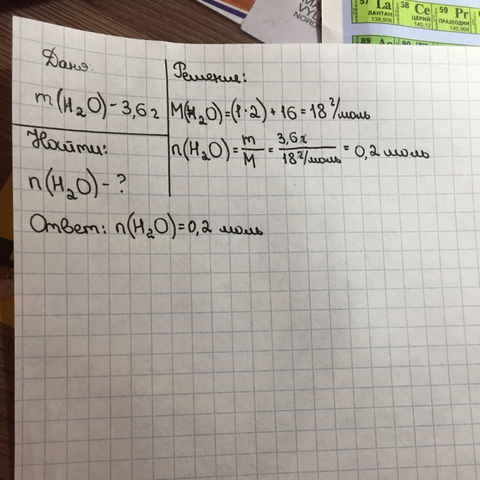 57 La
ЛАНТАН
138,906
58 Ce
ЦЕРИЙ
140,12
59 Pr
ПРАЗЕОДИМ
140,908
89 Ac
90
NORD
Дано:
m(H₂O) - 3,6 г
Найти:
n(H₂O) - ?
Решение:
M(H₂O) = (1·2) + 16 = 18 г/моль
n(H₂O) = m/M = 3,6 г/18 г/моль = 0,2 моль
Ответ: n(H₂O) = 0,2 моль